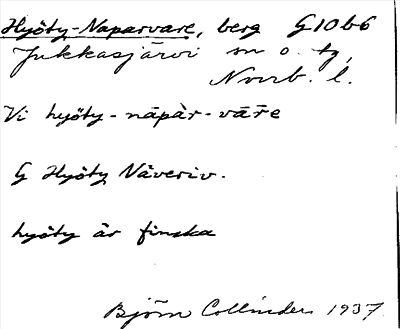 Hyöty-Naparvare, berg G10b6
Jukkasjärvi sn o. tg,
Norrb. l.
Vi hyöty-năpàr-vārē
G Hyöty Näveriv.
hyöty är finska
Björn Collinder 1937